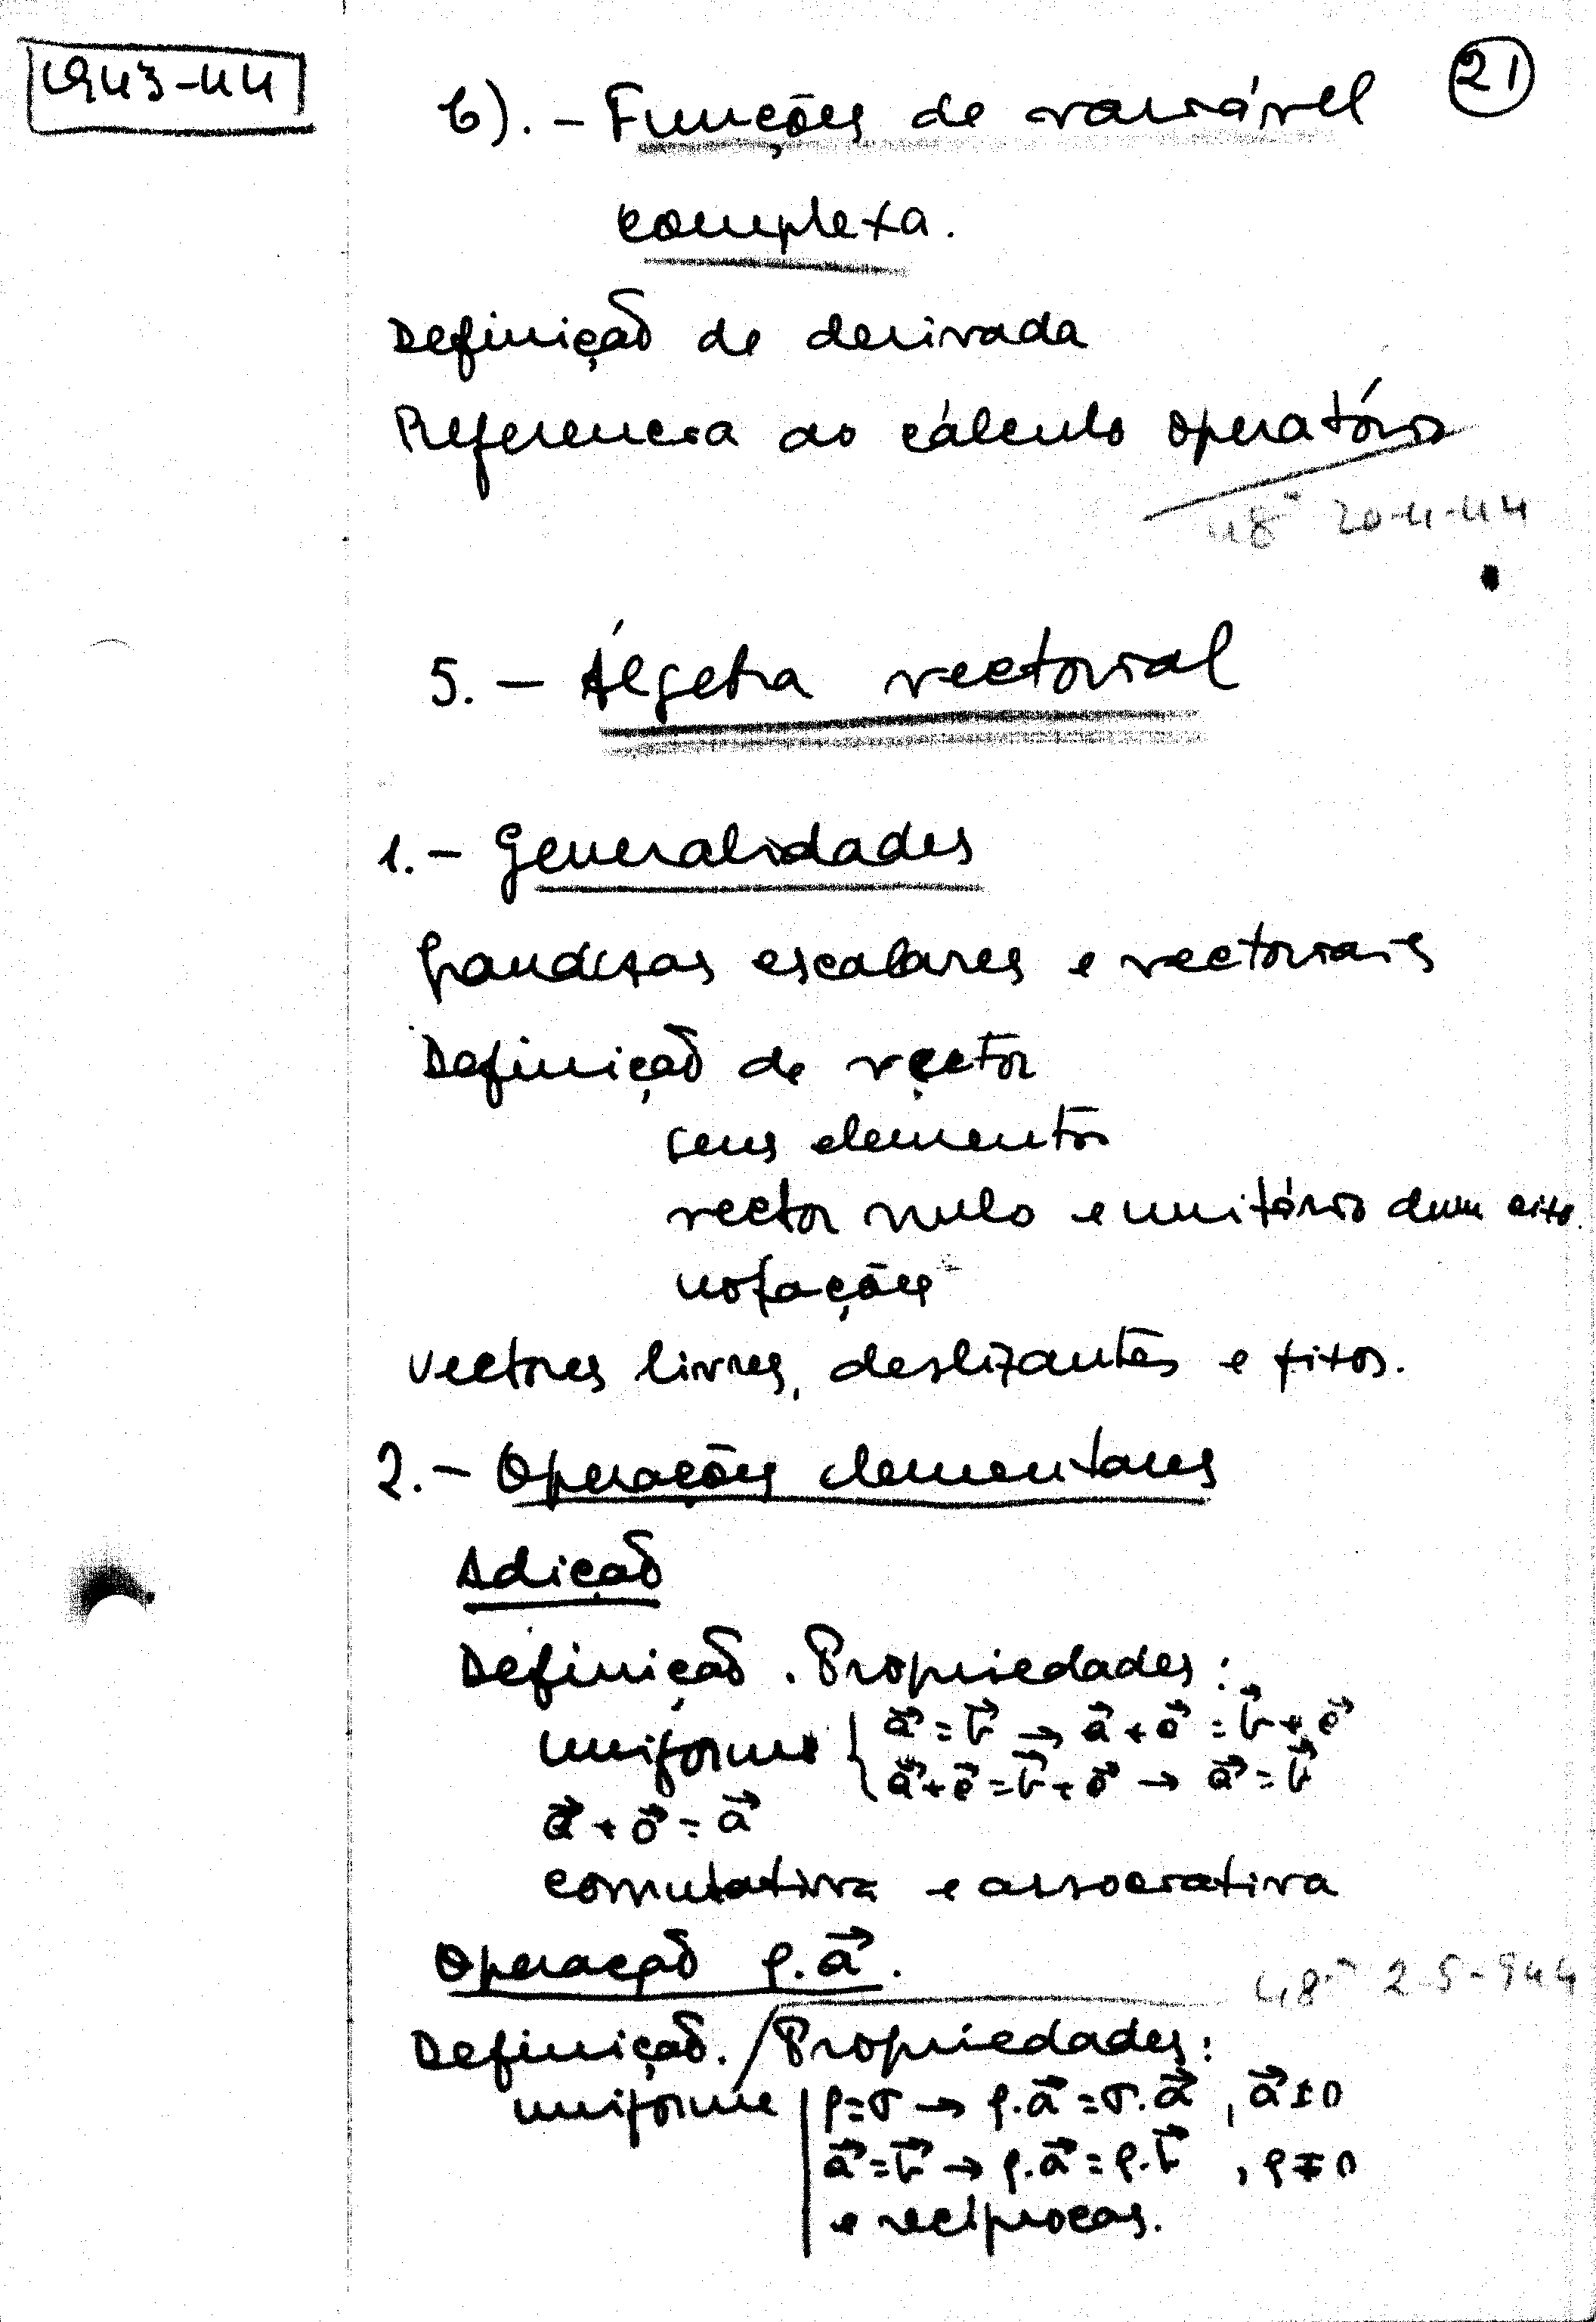 1943-44
21
6). - Funções de variável
complexa.
Definição de derivada
Referencia ao cálculo operatório
48ª 20-4-44
5. - Álgebra vectorial
1. - Generalidades
Grandezas escalares e vectoriais
Definição de vector
seus elementos
vector nulo e unitário dum eixo.
notações
Vectores livres, deslizantes e fixos.
2. - Operações elementares
Adição
Definição. Propriedades:
uniforme { a⃗ = b⃗ → a⃗ + c⃗ = b⃗ + c⃗
a⃗ + c⃗ = b⃗ + c⃗ → a⃗ = b⃗
a⃗ + o⃗ = a⃗
comutativa e associativa
Operação ρ.a⃗.
48ª 2-5-944
Definição. / Propriedades:
uniforme | ρ=σ → ρ.a⃗ = σ.a⃗ , a⃗ ≠ 0
a⃗ = b⃗ → ρ.a⃗ = ρ.b⃗ , ρ ≠ 0
e reciprocas.